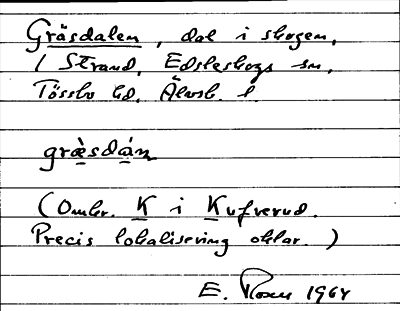 Gräsdalen, dal i skogen,
/ Strand, Edsleskogs sn,
Tössbo hd, Älvsb. l.
gräsdàn
(Omkr. K i Kufverud.
Precis lokalisering oklar.)
E. Rosen 1964